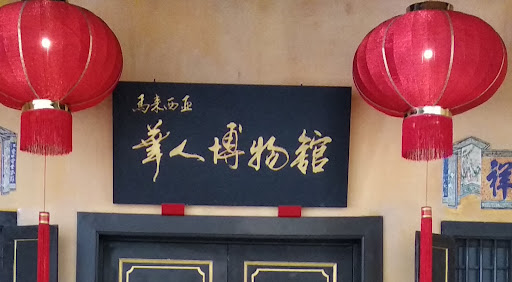 馬來西亞
華人博物館
祥